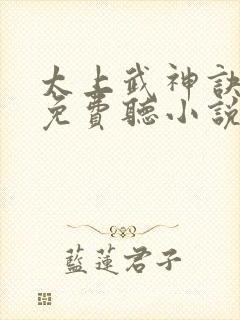 太上武神訣
免費聽小說
藍蓮君子